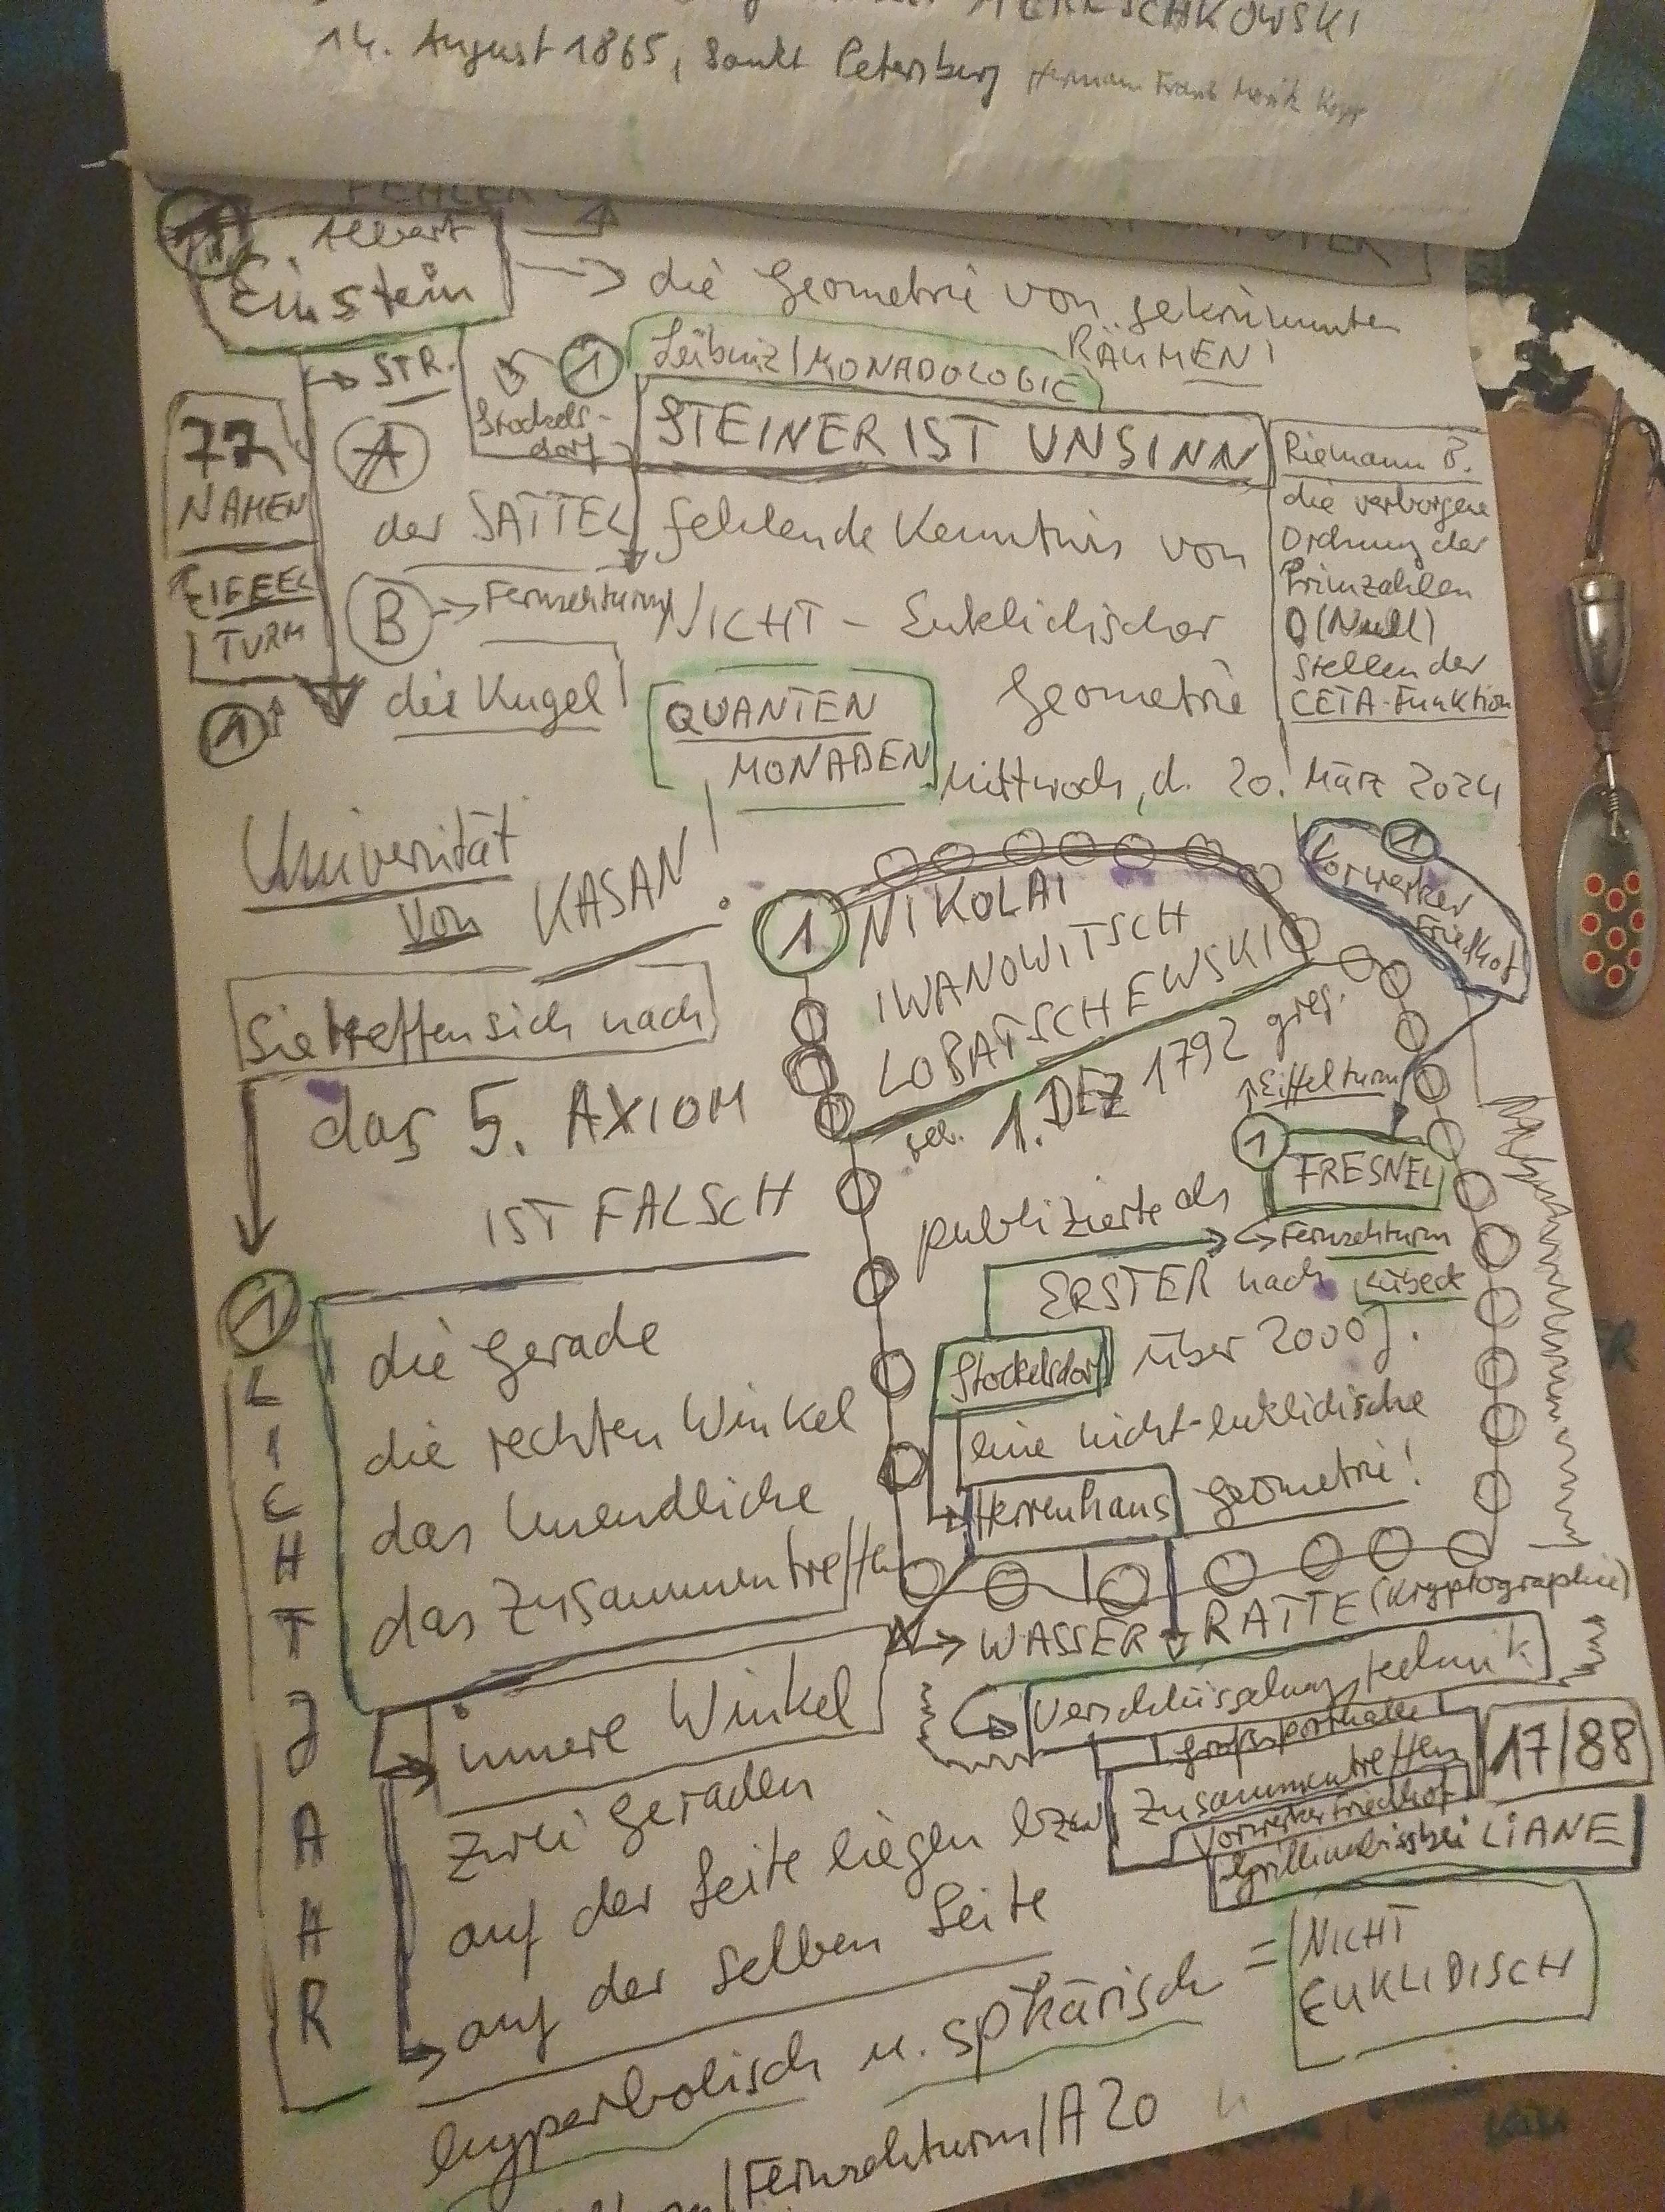 14. August 1865, Sankt Petersburg Hermann Franz Moritz Kopp
FEHLER
Albert
Einstein
→ die Geometrie von gekrümmten
RÄUMEN!
→ STR.
1
Leibniz/MONADOLOGIE)
Stockels-
dorf
STEINER IST UNSINN
77
NAMEN
EIFFEL
TURM
1
A
der SATTEL
B → Fernsehturm
die Kugel
fehlende Kenntnis von
NICHT - Euklidischer
Geometrie
Riemann B.
die verborgene
Ordnung der
Primzahlen
0 (Null)
Stellen der
CETA-Funktion
QUANTEN
MONADEN
Mittwoch, d. 20. März 2024
Universität
von KASAN!
1 NIKOLAI
IWANOWITSCH
LOBATSCHEWSKI
geb. 1. DEZ 1792 greg.
1
Vorwerker
Friedhof
Sie treffen sich nach
das 5. AXIOM
IST FALSCH
Eiffelturm
1 FRESNEL
Fernsehturm
Lübeck
publizierte als
ERSTER nach
Stockelsdorf über 2000 J.
eine nicht-euklidische
Herrenhaus Geometrie!
1
LICHTJAHR
die Gerade
die rechten Winkel
das Unendliche
das Zusammentreffen
→ WASSER RATTE (Kryptographie)
Verschlüsselungstechnik
Großsporthalle
Zusammentreffen
17/88
Vorwerker Friedhof
Grillimbiss bei LIANE
innere Winkel
zwei Geraden
auf der Seite liegen bzw.
auf der selben Seite
hyperbolisch u. sphärisch =
NICHT
EUKLIDISCH
/Fernsehturm/A20